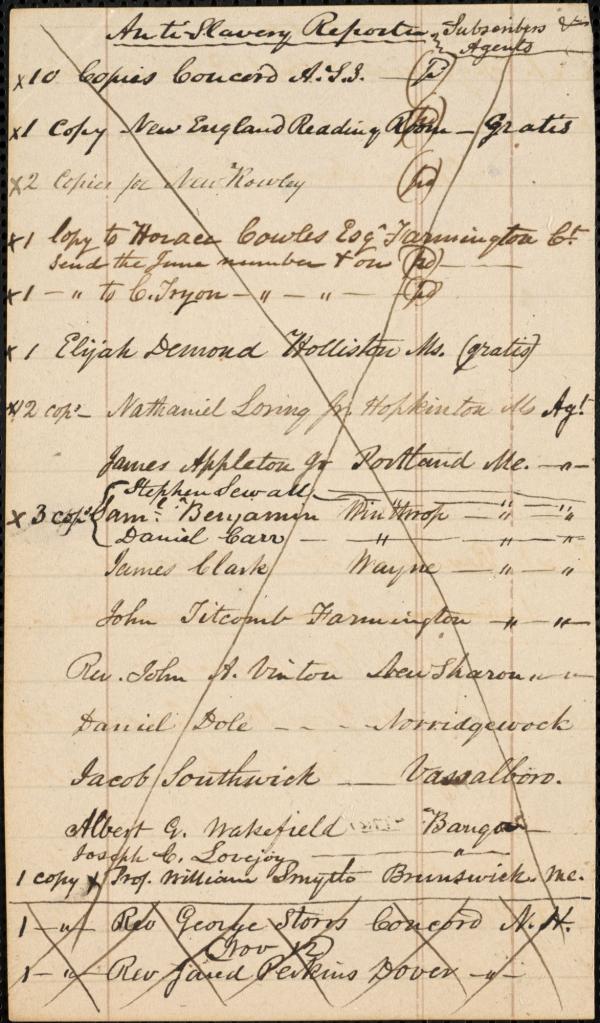 Anti-Slavery Reporter Subscribers &
Agents
x 10 Copies Concord A.S.S. — pd
x 1 Copy New England Reading Room — Gratis
x 2 Copies for New Rowley pd
x 1 Copy to Horace Cowles Esqr Farmington Ct.
send the June number & on pd —
x 1 — " to C. Tryon — " — " — pd
x 1 Elijah Demond Holliston Ms. (gratis)
x 12 cops — Nathaniel Loring Jr. Hopkinton Ms Agt
James Appleton Portland Me. — " —
Stephen Sewall — " — "
x 3 cops Saml. Benjamin Winthrop — " — "
Daniel Carr — " — " — "
James Clark Wayne — " — "
John Titcomb Farmington — " — " —
Rev. John A. Vinton New Sharon " — " —
Daniel Dole - - - Norridgewock
Jacob Southwick — Vassalboro.
Albert G. Wakefield Bangor —
Joseph C. Lovejoy — " —
1 copy x Prof. William Smyth Brunswick. Me.
1 — " — Rev George Storrs Concord N. H.
(Nov 12)
1 — " — Rev Jared Perkins Dover — " —